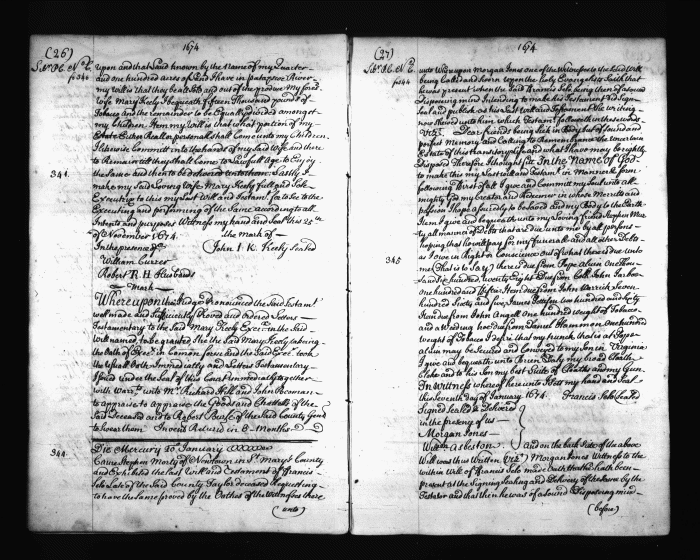 (26)
1674
upon and that Land known by the Name of my Quarter
and one hundred acres of Land I have in patapsco River
my will is that they be all sold out of the produce My Loved
wife Mary Keely I bequeath fifteen Thousand pounds of
Tobacco and the remainder to be Equally divided amongst
my Children. Item my Will is that what portion of my
Estate Either Reall or personall shall Come unto my Children
I likewise Committ into the hands of my said wife and there
to Remain till they shall Come to Lawfull Age to Enjoy
341.
the Same and then to be delivered unto them. Lastly I
make my said Loving wife Mary Keely full and Sole
Executrix to this my Last Will and Testamt for to See to the
Executing and performing of the Same according to all
Intents and purposes Witness my hand and Seal this 25th
of November 1674.
the mark of
In the presence of
John I. K. Keely Sealed
William Currer
Robert R. H. Husbands
Mark
Whereupon the Judge pronounced the said Testamt
well made and Sufficiently Proved and ordered Letters
Testamentary to the said Mary Keely Execrx in the said
Will named, to be granted She the said Mary Keely taking
the Oath of Execrx in Common form and the said Execrx took
the usuall Oath Immediatly and Letters Testamentary
Issued under the Seal of this Court immediatly together
with Warrt unto Mr. Richard Hill and John
to appraise the Goods and Chattells of the
said Deceased and to Robert Burle of the said County Gent
to swear them Inventy Returnd in 3 Months
344
Die Mercury To January
Came Stephen Murty of Newtown in St. Mary's County
and Exhibited the last Will and Testament of Francis
Sele Late of the said County Taylor deceased Requesting
to have the same proved by the Oathes of the Witnesses there
(unto)
(27)
1674
unto Whereupon Morgan Jones one of the Witnesses to the said Will
being Called and Sworn upon the Holy Evangelists Saith that
he was present when the said Francis Sele being then of a sound
Disposeing mind Intending to make his Testament did Sign
Seal and publish as his Last Will and Testament the writing
now shewed unto him which Testamt followeth in these words
Vizt. Dear friends being Sick in Body but of Sound and
perfect Memory and Calling to Remembrance the uncertain
Estate of this transitory life and what I have may be rightly
Disposed Therefore I thought fit In the Name of God
to make this my Last Will and Testamt in Manner & form
following First of all I give and Committ my Soul unto all-
mighty God my Creator and Redeemer in whose Merritts and
passion I hope absolutely to be saved and my Body to the Earth
Item I give and bequeath unto my Loving friend Stephen Mur-
ty all manner of Debts that are due unto me by all persons
hoping that he will pay for my funerall and all other Debts
345
as I owe in Right or Conscience Out of what there is due unto
me (That is to Say) there is due from Pope Alvin One thou-
sand six hundred twenty Eight & due from Coll. John Jarboe
One hundred and fifty Item due from John Warrick Seven
hundred Sixty and five James Pattison two hundred and forty
Item due from John Angell One hundred Weight of Tobacco
and a Weeding hoe due from Daniel Hammon one hundred
weight of Tobacco I desire that my trunk that is at Pope
Alvin may be Secured and Conveyed to my Son in Virginia
I give and bequeath unto Brian Daly my Good Cloath
Cloke and to his Son my best Suite of Cloaths and my Gun
In witness whereof I here unto Sett my hand and Seal
this Seventh day of January 1674
Francis Sele Sealed
Signed Sealed & Delivered
in the presency of us
Morgan Jones
Willm Asbeston
And on the back Side of the above
Will was thus Written (vizt) Morgan Jones Witness to the
within Will of Francis Sele made Oath that he hath been
present at the Signing Sealing and Delivery of the Same by the
Testator and that then he was of a Sound Disposeing mind
(before)